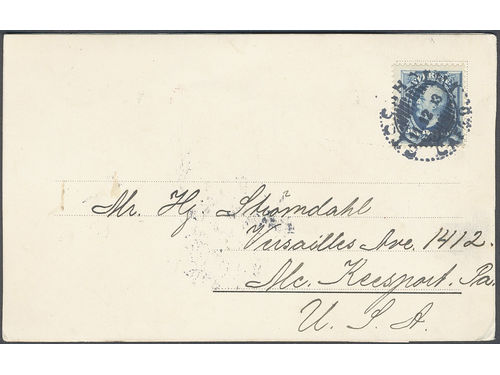 Mr. Hj Strömdahl
Versailles Ave. 1412.
Mc. Keesport. Pa.
U. S. A.